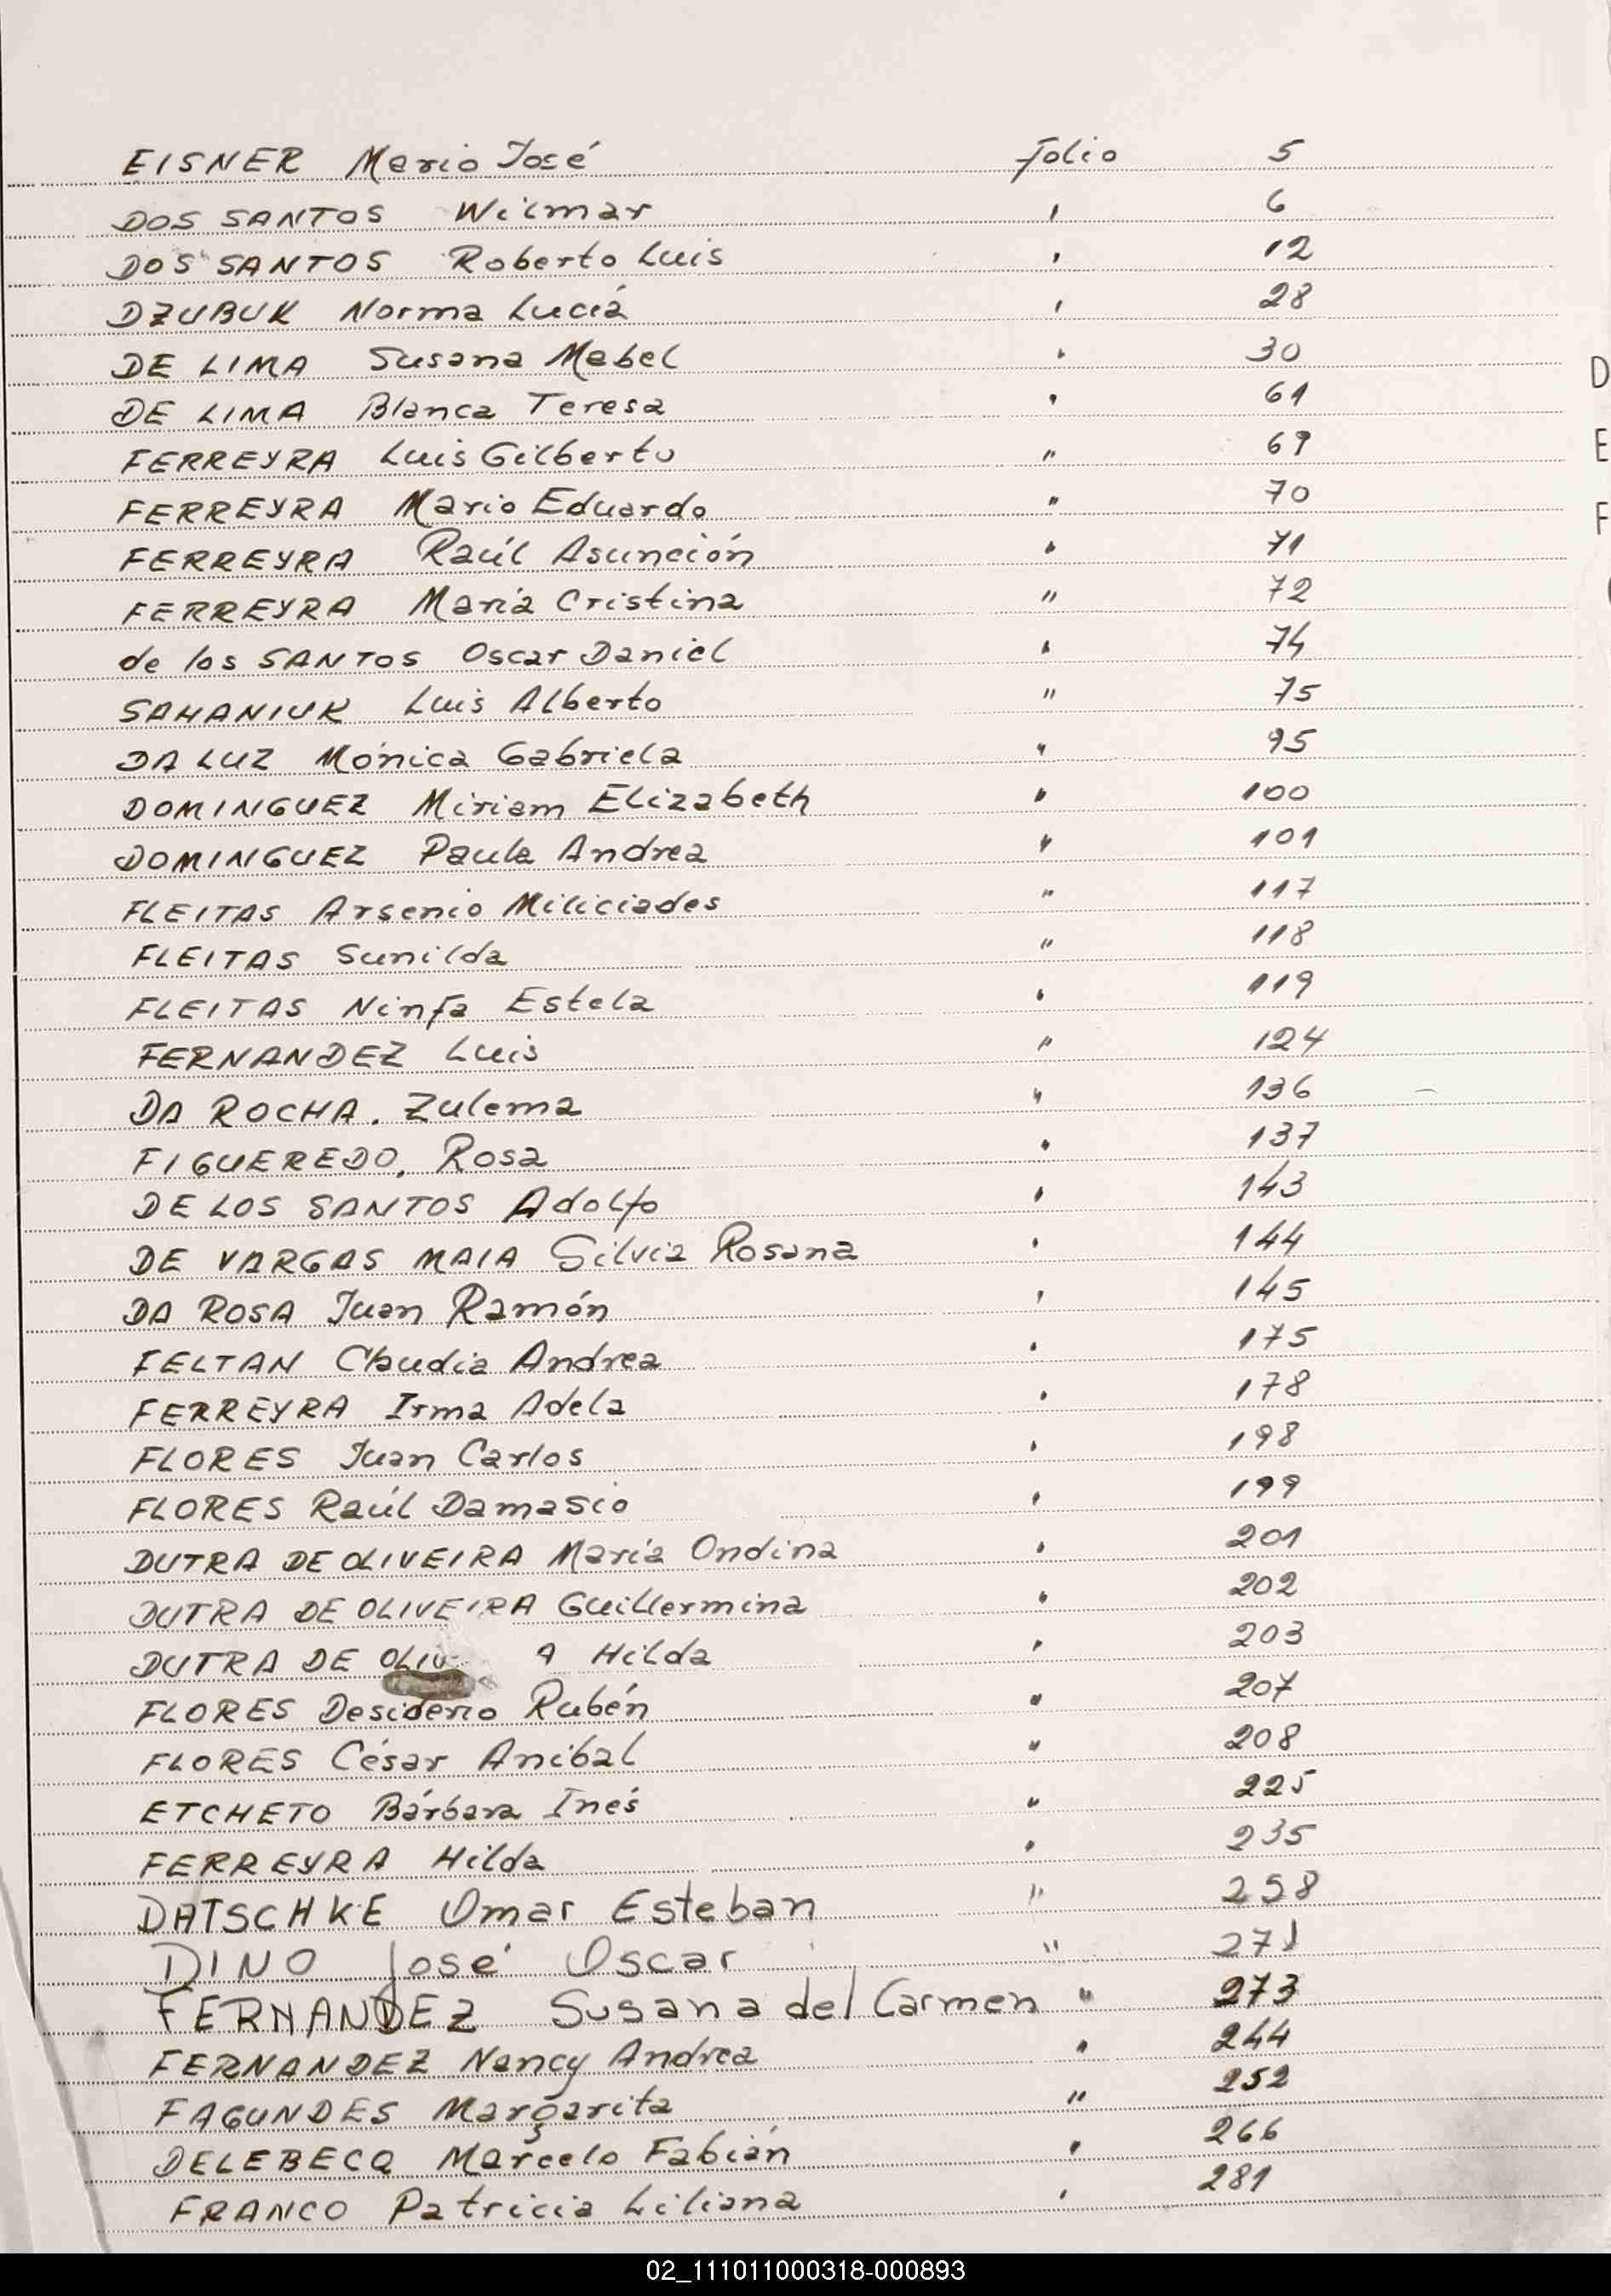 EISNER Mario José folio 5
DOS SANTOS Wilmar " 6
DOS SANTOS Roberto Luis " 12
DZUBUK Norma Lucía " 28
DE LIMA Susana Mabel " 30
DE LIMA Blanca Teresa " 61
FERREYRA Luis Gilberto " 69
FERREYRA Mario Eduardo " 70
FERREYRA Raúl Asunción " 71
FERREYRA María Cristina " 72
de los SANTOS Oscar Daniel " 74
SAHANIUK Luis Alberto " 75
DA LUZ Mónica Gabriela " 95
DOMINGUEZ Miriam Elizabeth " 100
DOMINGUEZ Paula Andrea " 101
FLEITAS Arsenio Miliciades " 117
FLEITAS Sunilda " 118
FLEITAS Ninfa Estela " 119
FERNANDEZ Luis " 124
DA ROCHA. Zulema " 136
FIGUEREDO, Rosa " 137
DE LOS SANTOS Adolfo " 143
DE VARGAS MAIA Silvia Rosana " 144
DA ROSA Juan Ramón " 145
FELTAN Claudia Andrea " 175
FERREYRA Irma Adela " 178
FLORES Juan Carlos " 198
FLORES Raúl Damasio " 199
DUTRA DE OLIVEIRA María Ondina " 201
DUTRA DE OLIVEIRA Guillermina " 202
DUTRA DE OLIV A Hilda " 203
FLORES Desiderio Rubén " 207
FLORES César Anibal " 208
ETCHETO Bárbara Inés " 225
FERREYRA Hilda " 235
DATSCHKE Omar Esteban " 258
DINO José Oscar " 271
FERNANDEZ Susana del Carmen " 273
FERNANDEZ Nancy Andrea " 244
FAGUNDES Margarita " 252
DELEBECQ Marcelo Fabián " 266
FRANCO Patricia Liliana " 281
D
E
F
02_111011000318-000893